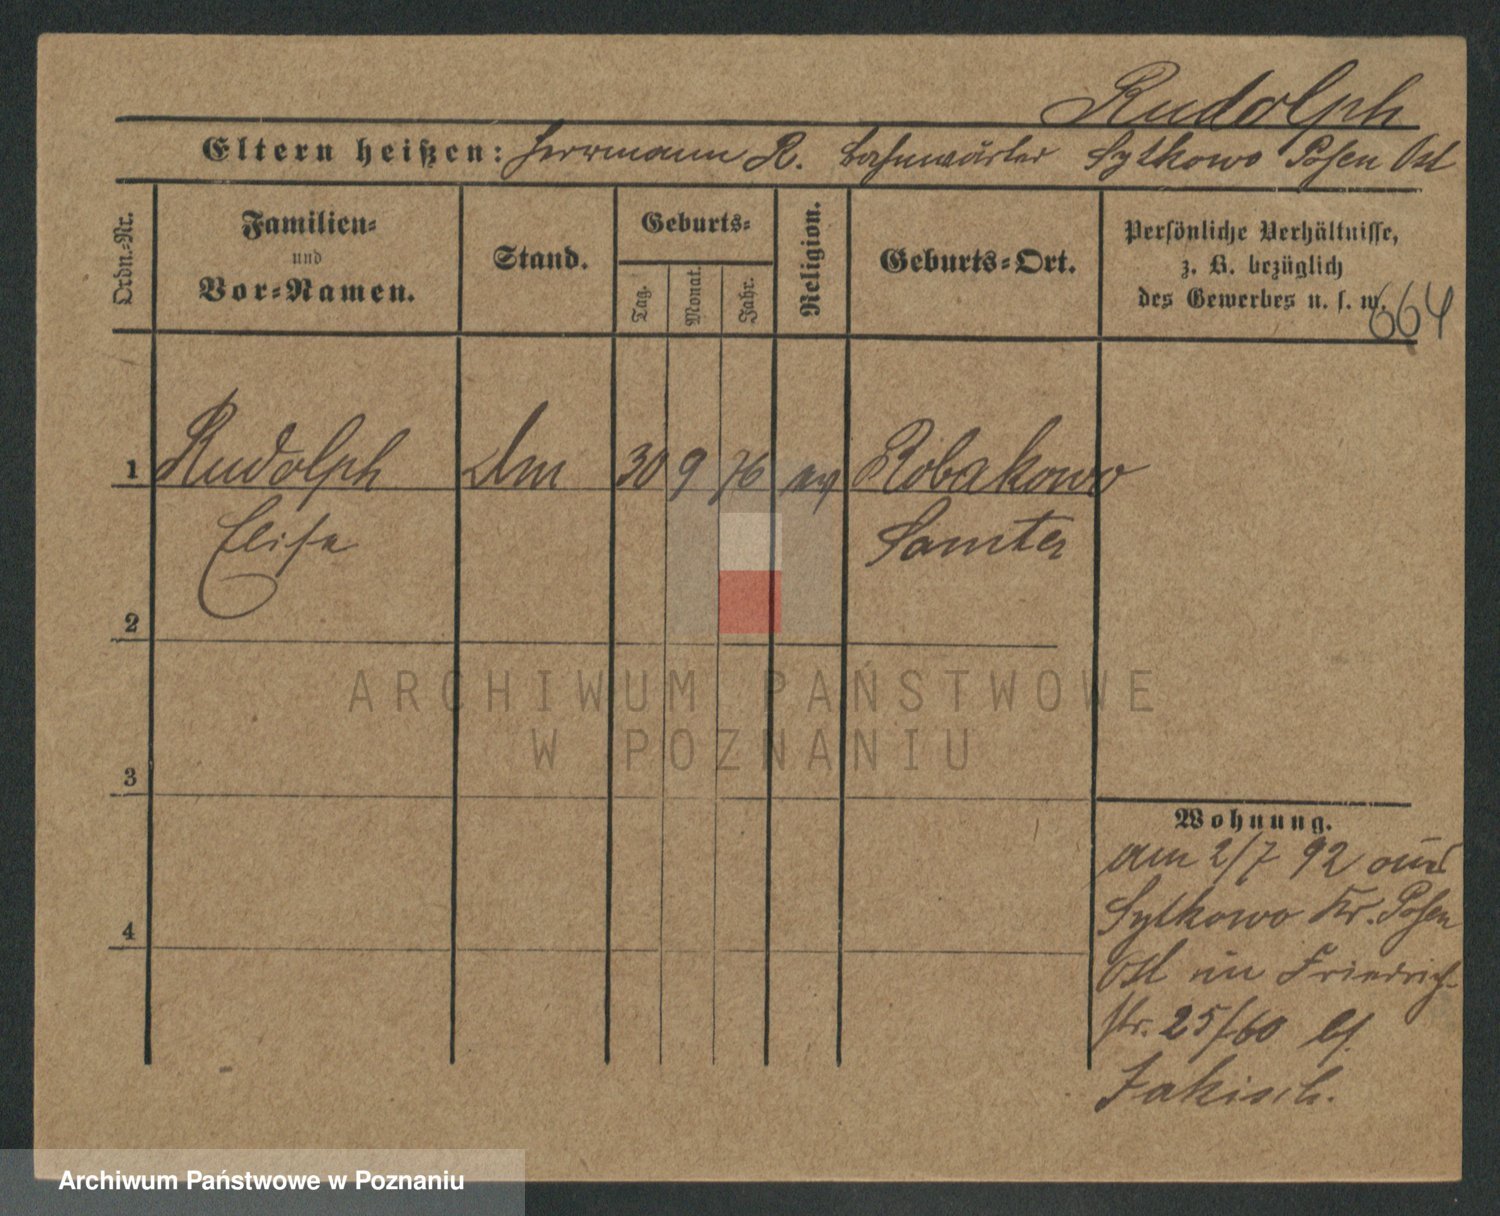 Rudolph
Eltern heißen: Herrmann R. Bahnwärter Sytkowo Posen Ost
Ordn.-Nr.
Familien-
und
Vor-Namen.
Stand.
Geburts-
Tag.
Monat.
Jahr.
Religion.
Geburts-Ort.
Persönliche Verhältnisse,
z. B. bezüglich
des Gewerbes u. s. w.
664
1 Rudolph Dm 30 9 76 ev Robakowo
Elise Samter
2
ARCHIWUM PAŃSTWOWE
W POZNANIU
3
Wohnung.
am 2/7 92 aus
Sytkowo Kr. Posen
4
Ost in Friedrich-
str. 25/60 bf.
Jakisch.
Archiwum Państwowe w Poznaniu